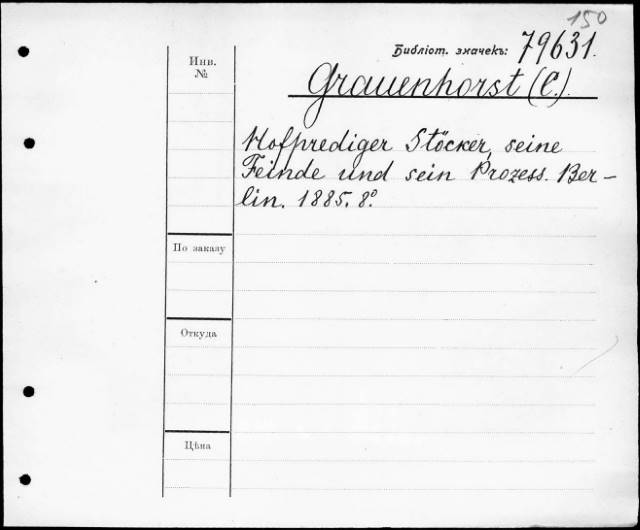 150
Библіот. значекъ: 79631.
Инв.
№
Grauenhorst (C.).
Hofprediger Stöcker, seine
Feinde und sein Prozess. Ber-
lin. 1885. 8°.
По заказу
Откуда
Цѣна